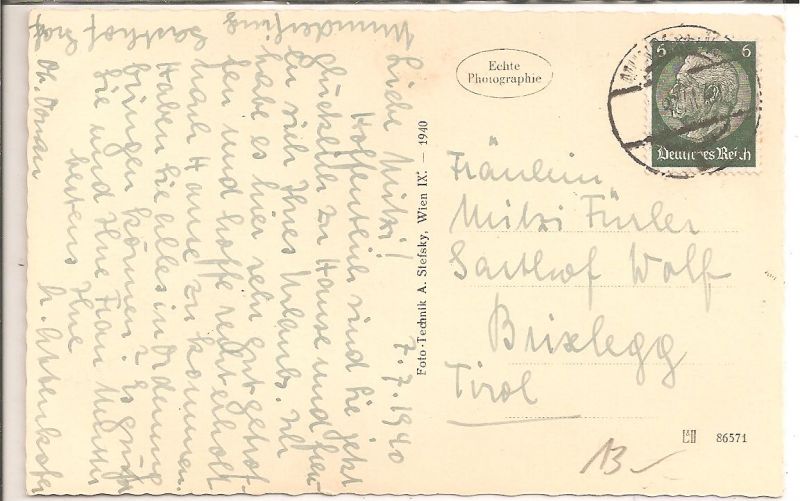 7.7.1940
Liebe Mitzi!
Hoffentlich sind Sie jetzt
glücklich zu Hause und freu-
en sich Ihres Urlaubs. Ich
habe es hier sehr gut getrof-
fen und hoffe recht erholt
nach Hause zu kommen.
Haben Sie alles in Ordnung
bringen können? Es grüßt
Sie und Ihre Frau
bestens Ihre
Ob. Donau
Gasthof Post
Echte
Photographie
Foto-Technik A. Stefsky, Wien IX. — 1940
6 6
Deutsches Reich
Fräulein
Mitzi Fürler
Gasthof Wolf
Brixlegg
Tirol
86571
13.-